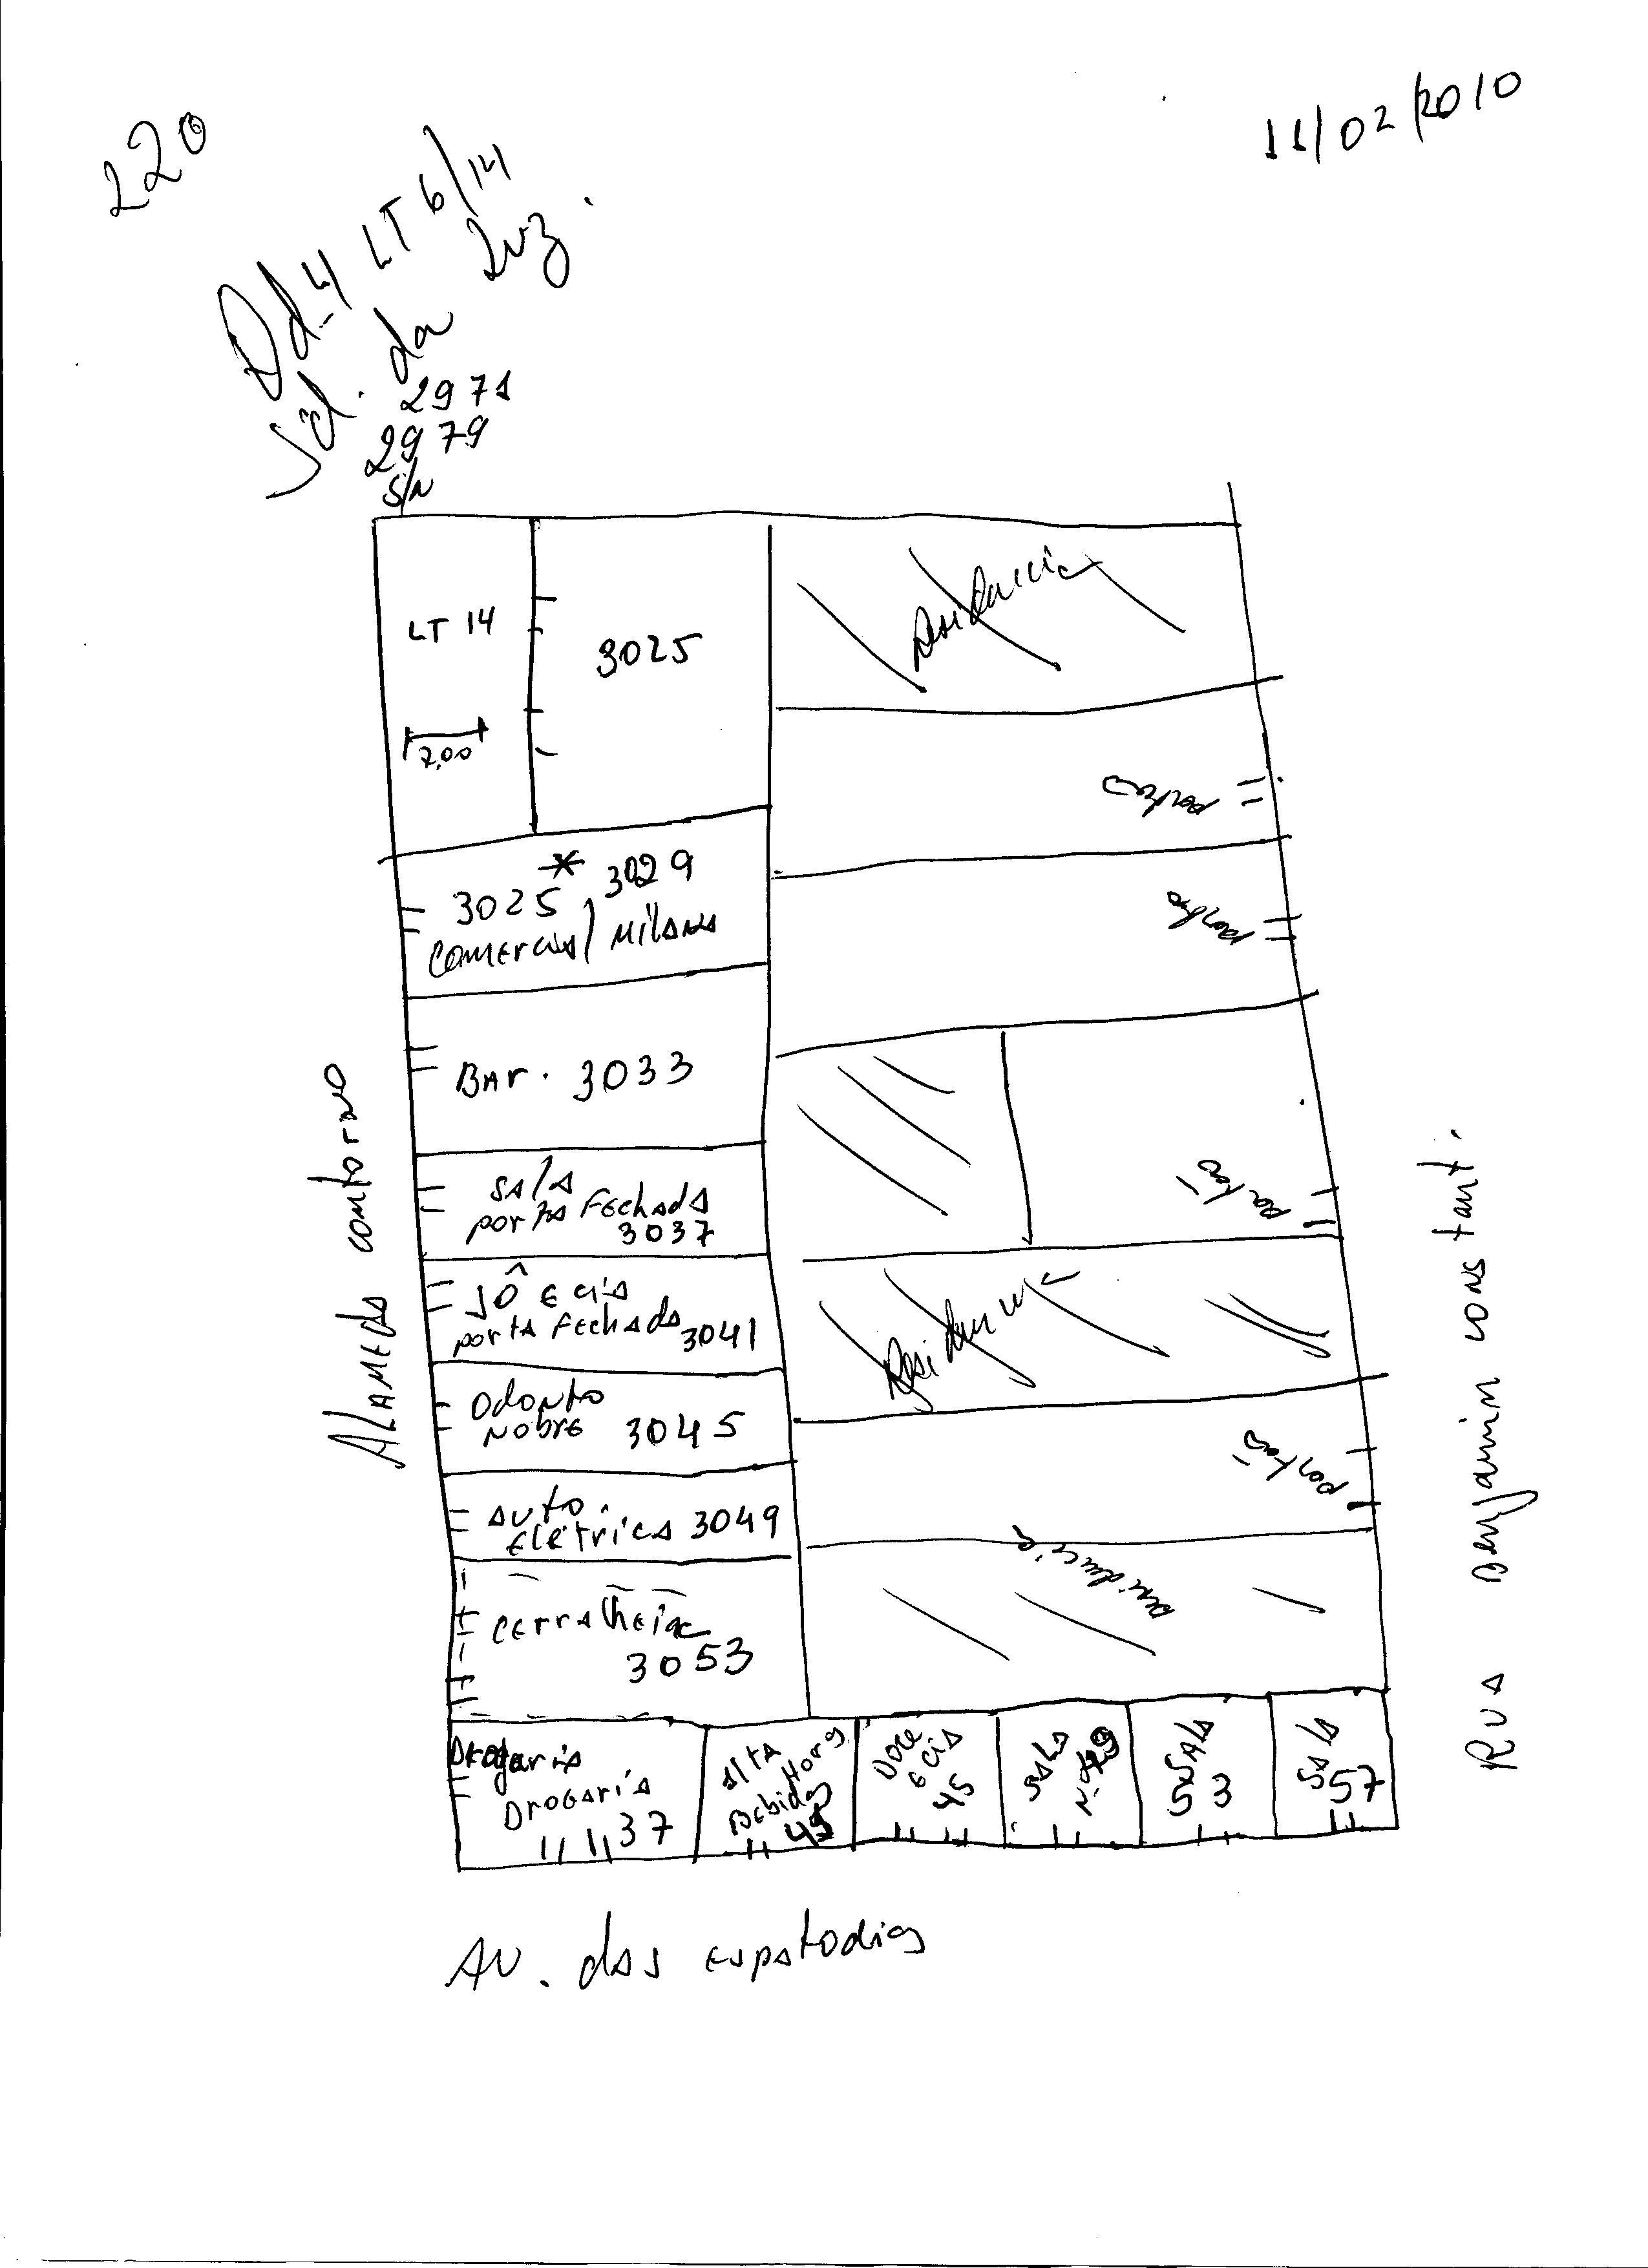 220
11/02/2010
Qd-4 LT 6/14
Jd. da Luz.
2971
2979
S/N
LT 14
3025
Residencia
2,00
portão
* 3029
3025
Comercial Milana
portão
Bar. 3033
sala
porta Fechada
3037
portão
Jô e Cia
porta Fechada 3041
Residencia
Odonto
Nobre 3045
portão
Auto
Elétrica 3049
residencia
Cerralheia
3053
Drogaria
Drogaria
37
Alta
Horas
Bebidas
Doce
e Cia
45
Sala
Nº 49
Sala
53
Sala
57
Alameda contorno
Rua Benjamin constant.
Av. das espatodias